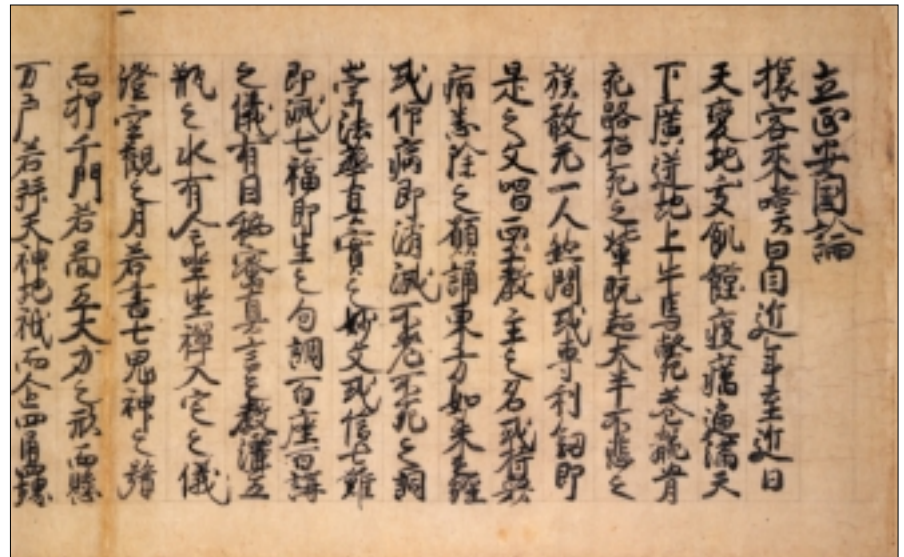 立正安國論
旅客來嘆曰自近年至近日
天變地夭飢饉疫癘遍滿天
下廣迸地上牛馬斃巷骸骨
充路招死之輩既超大半不悲之
族敢无一人然間或專利釼即
是之文唱西土教主之名或持衆
病悉除之願誦東方如來之經
或仰病即消滅不老不死之詞
崇法華真實之妙文或信七難
即滅七福即生之句調百座百講
之儀有因秘密真言之教灑五
瓶之水有全坐禪入定之儀
澄空觀之月若書七鬼神之號
而押千門若圖五大力之形而懸
万戸若拜天神地祇而企四角四堺